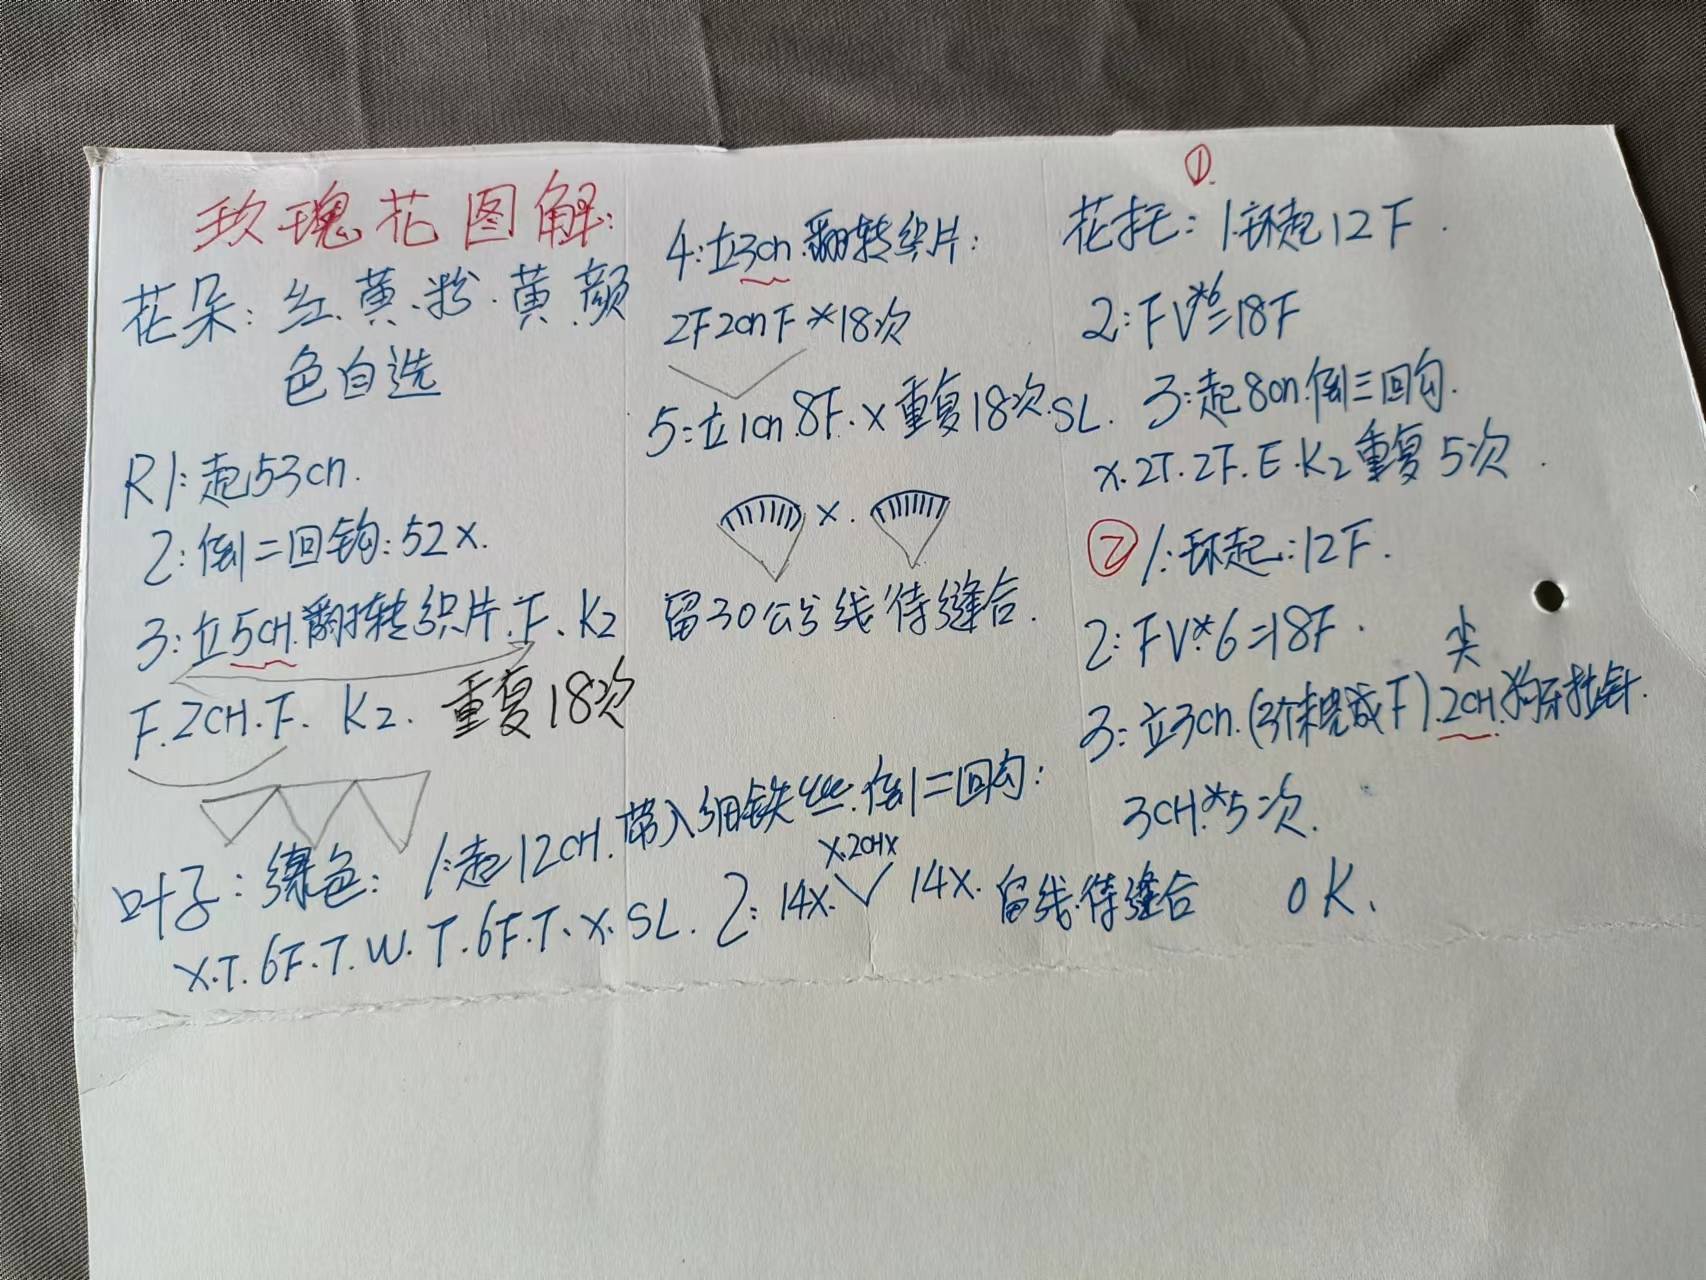 玫瑰花图解:
花朵: 红.黄.粉.黄.颜
色自选
R1: 起53cn.
2: 倒二回钩: 52X.
3: 立5CH.翻转织片.F、K2
F.2CH.F. K2. 重复18次
4: 立3cn.翻转织片:
2F2cnF*18次
5: 立1cn.8F.X重复18次.SL.
X.
留30公分线待缝合.
①.
花托: 1.环起12F.
2: FV*6=18F
3: 起8cn.倒三回勾.
X.2T.2F.E.K2重复5次.
② 1: 环起: 12F.
2: FV*6=18F.
尖
3: 立3cn.(3个未完成F).2CH.狗牙拉针.
3CH*5次.
叶子: 绿色: 1: 起12CH.带入细铁丝.倒二回勾:
X.T.6F.T.W.T.6F.T.X.SL. 2: 14X. X.2CHX V 14X. 留线.待缝合 OK.